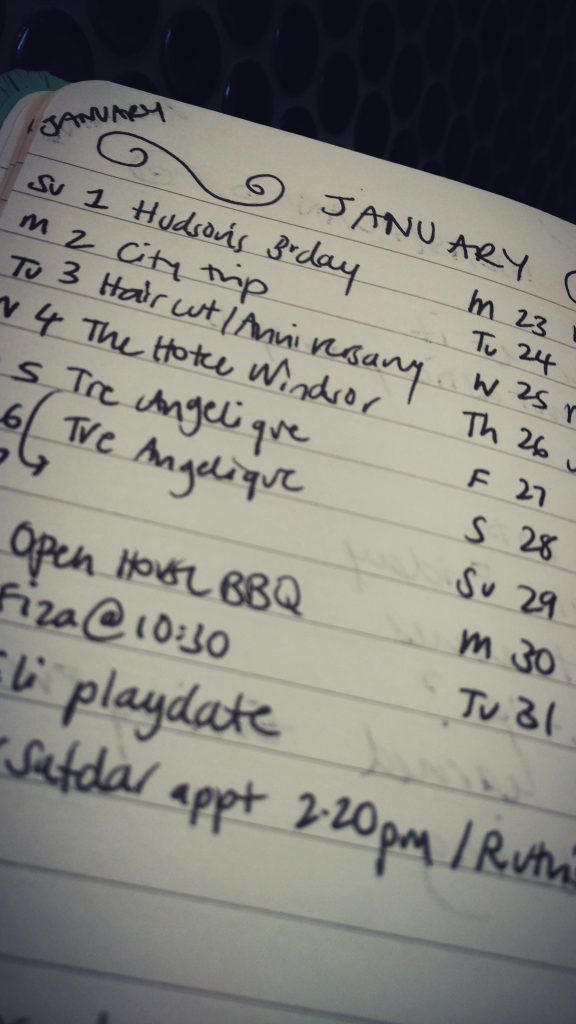 JANUARY
JANUARY
Su 1 Hudson's B'day
M 2 City trip
Tu 3 Haircut/Anniversary
W 4 The Hotel Windsor
5 Tre Angelique
6 Tre Angelique
Open House BBQ
Fiza @ 10:30
playdate
appt 2.20pm /
M 23
Tu 24
W 25
Th 26
F 27
S 28
Su 29
M 30
Tu 31